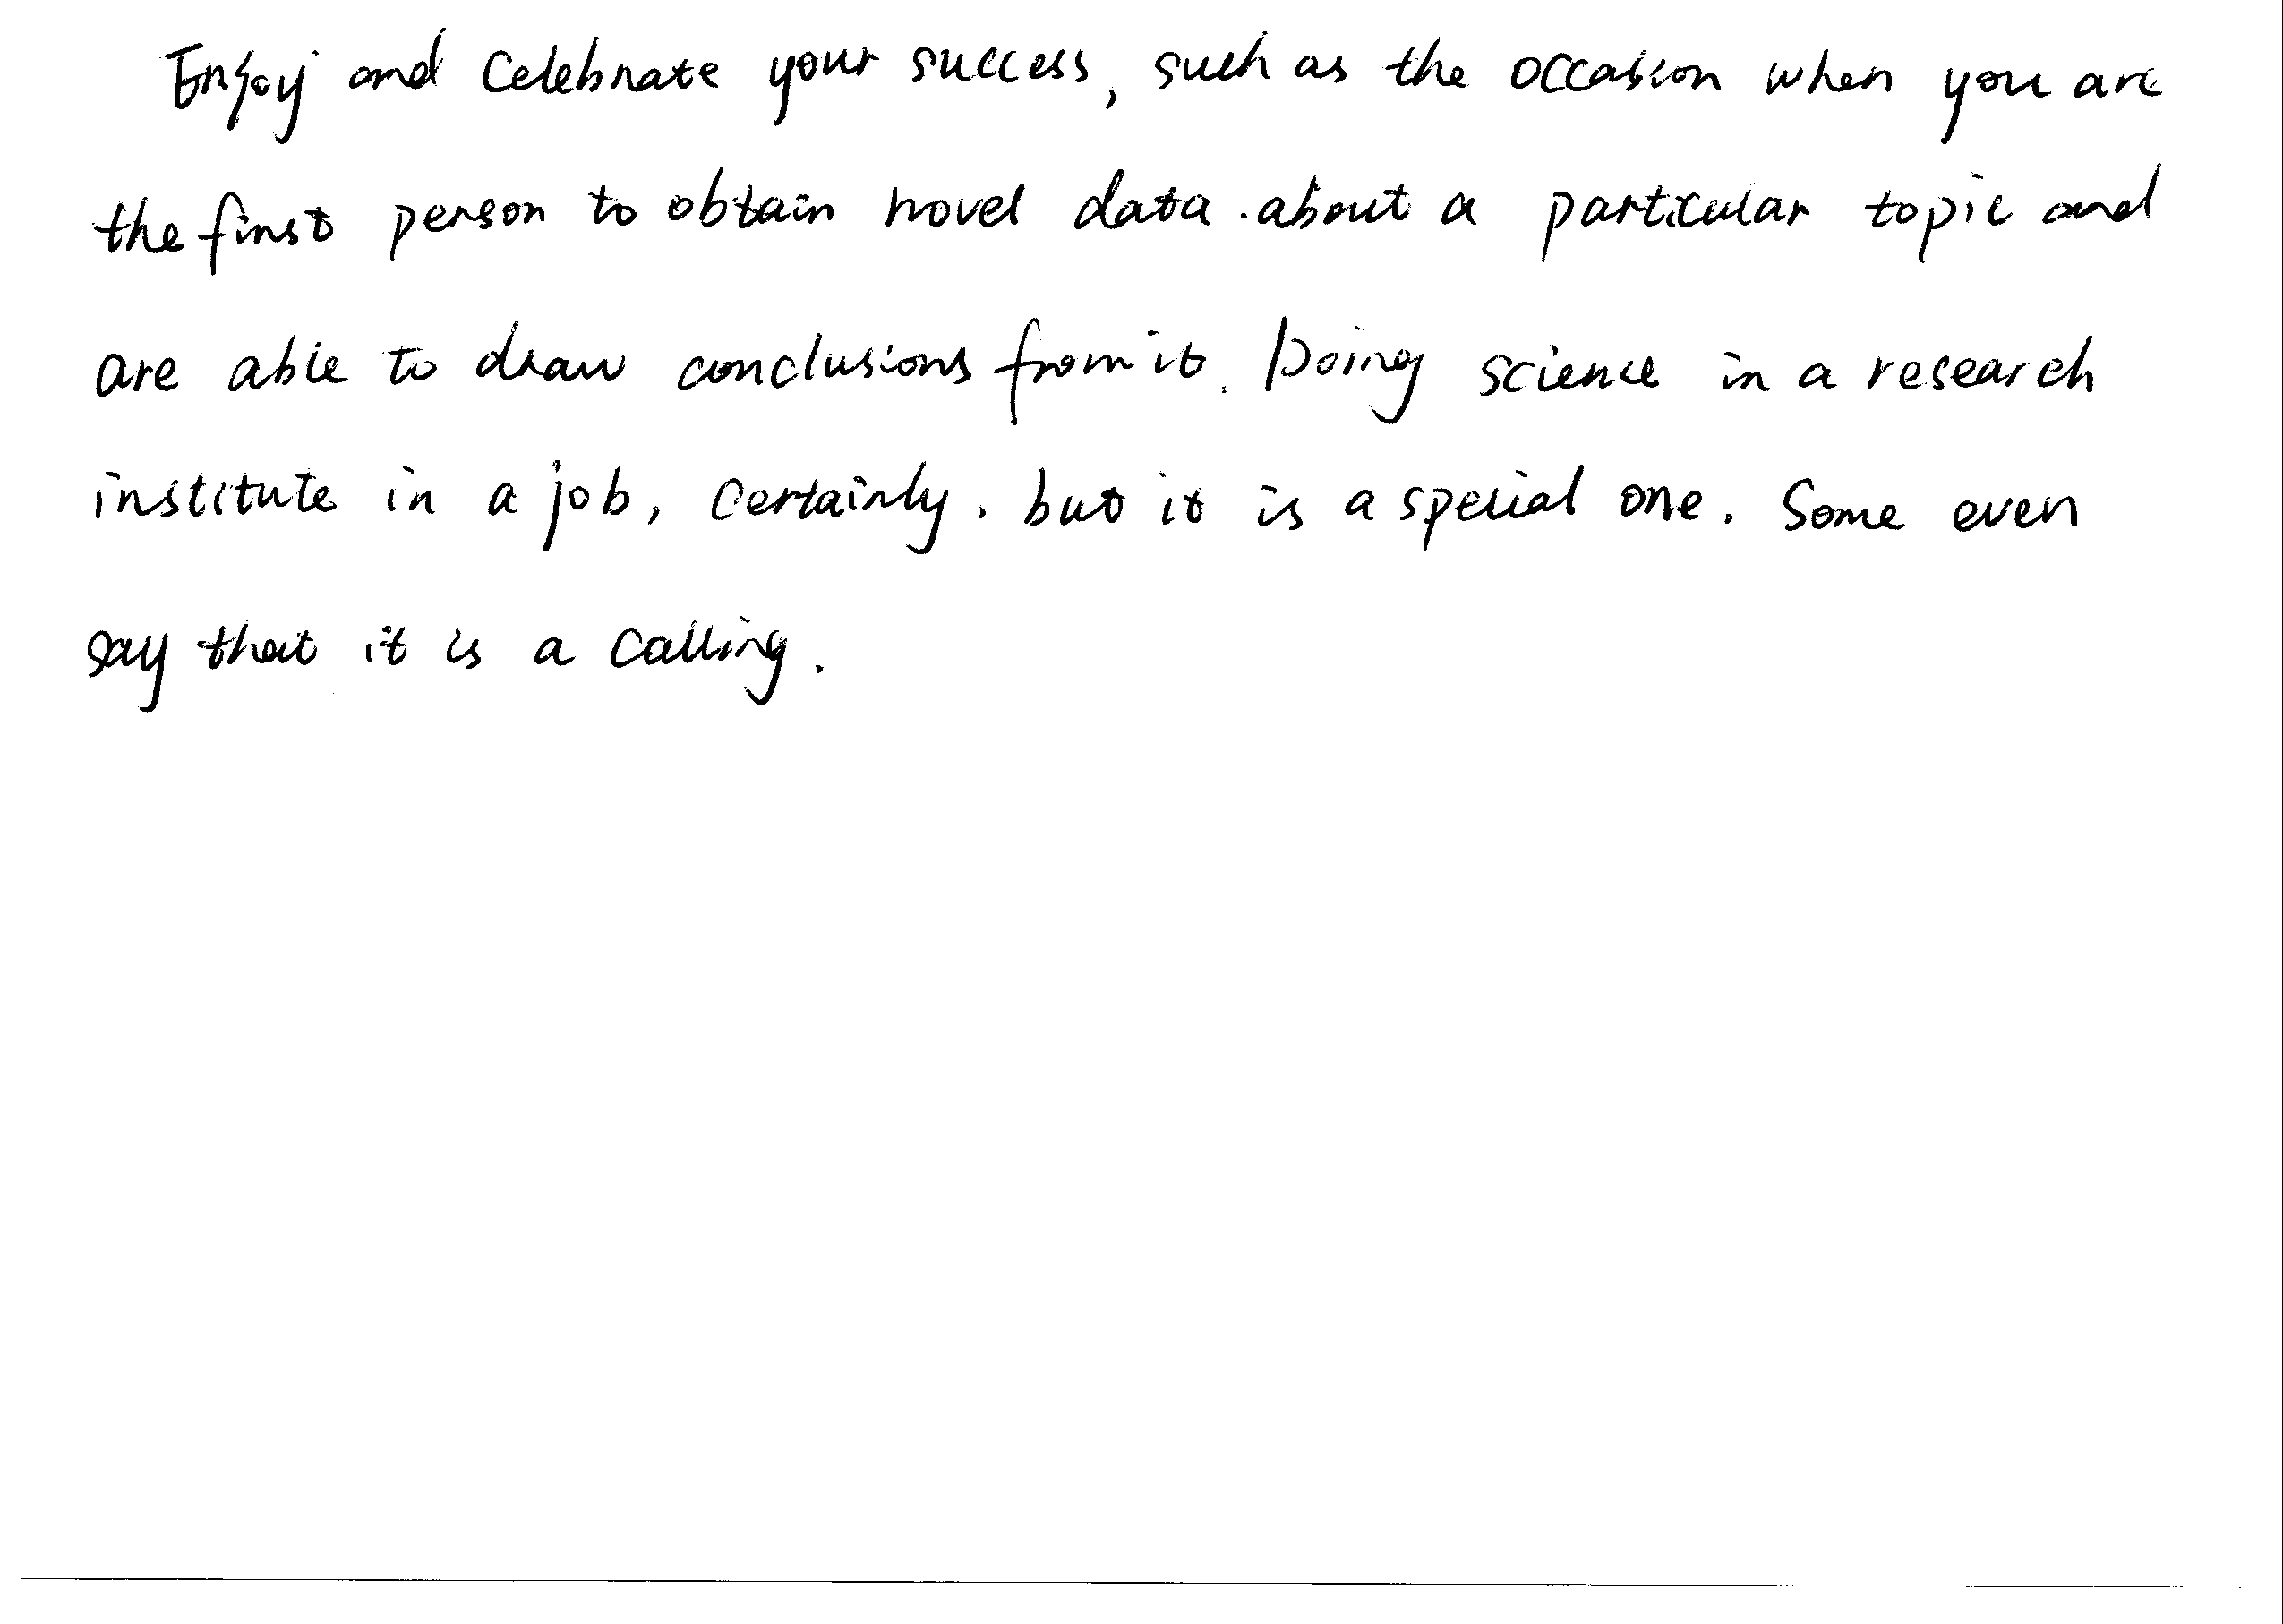 Enjoy and Celebrate your success, such as the occasion when you are
the first person to obtain novel data .about a particular topic and
are able to draw conclusions from it. Doing science in a research
institute in a job, Certainly, but it is a special one. Some even
say that it is a calling.